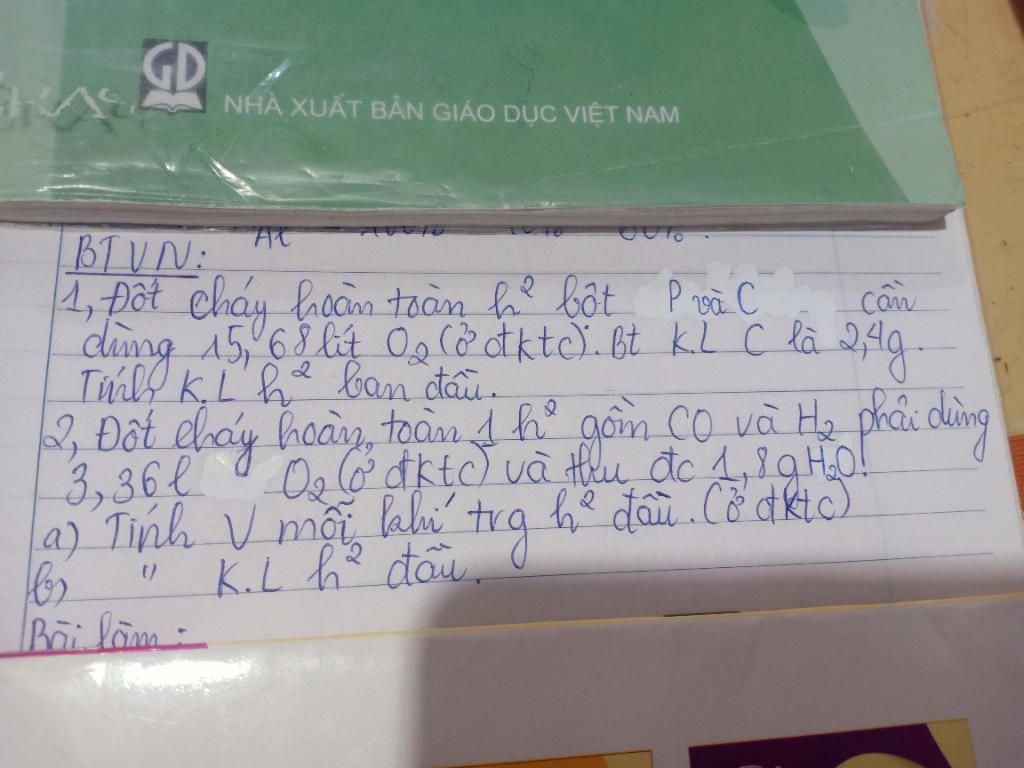 GD
NHÀ XUẤT BẢN GIÁO DỤC VIỆT NAM
BTVN:
1, Đốt cháy hoàn toàn h² bột P và C cần
dùng 15,68 lít O₂ (ở đktc). Bt K.L C là 2,4g.
Tính K.L h² ban đầu.
2, Đốt cháy hoàn toàn 1 h² gồm CO và H₂ phải dùng
3,36l O₂ (ở đktc) và thu đc 1,8g H₂O!
a) Tính V mỗi khí trg h² đầu. (ở đktc)
b) " K.L h² đầu.
Bài làm: